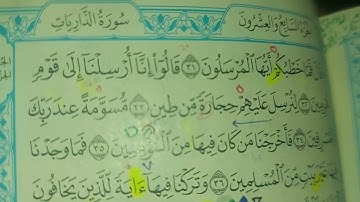 الجزء السابع والعشرون سُورَةُ الذَّارِيَاتِ
فَمَا خَطْبُكُمْ أَيُّهَا الْمُرْسَلُونَ ٣١ قَالُوا إِنَّا أُرْسِلْنَا إِلَى قَوْمٍ
٣٢ لِنُرْسِلَ عَلَيْهِمْ حِجَارَةً مِنْ طِينٍ ٣٣ مُسَوَّمَةً عِنْدَ رَبِّكَ
٣٤ فَأَخْرَجْنَا مَنْ كَانَ فِيهَا مِنَ الْمُؤْمِنِينَ ٣٥ فَمَا وَجَدْنَا
بَيْتٍ مِنَ الْمُسْلِمِينَ ٣٦ وَتَرَكْنَا فِيهَا ءَايَةً لِلَّذِينَ يَخَافُونَ